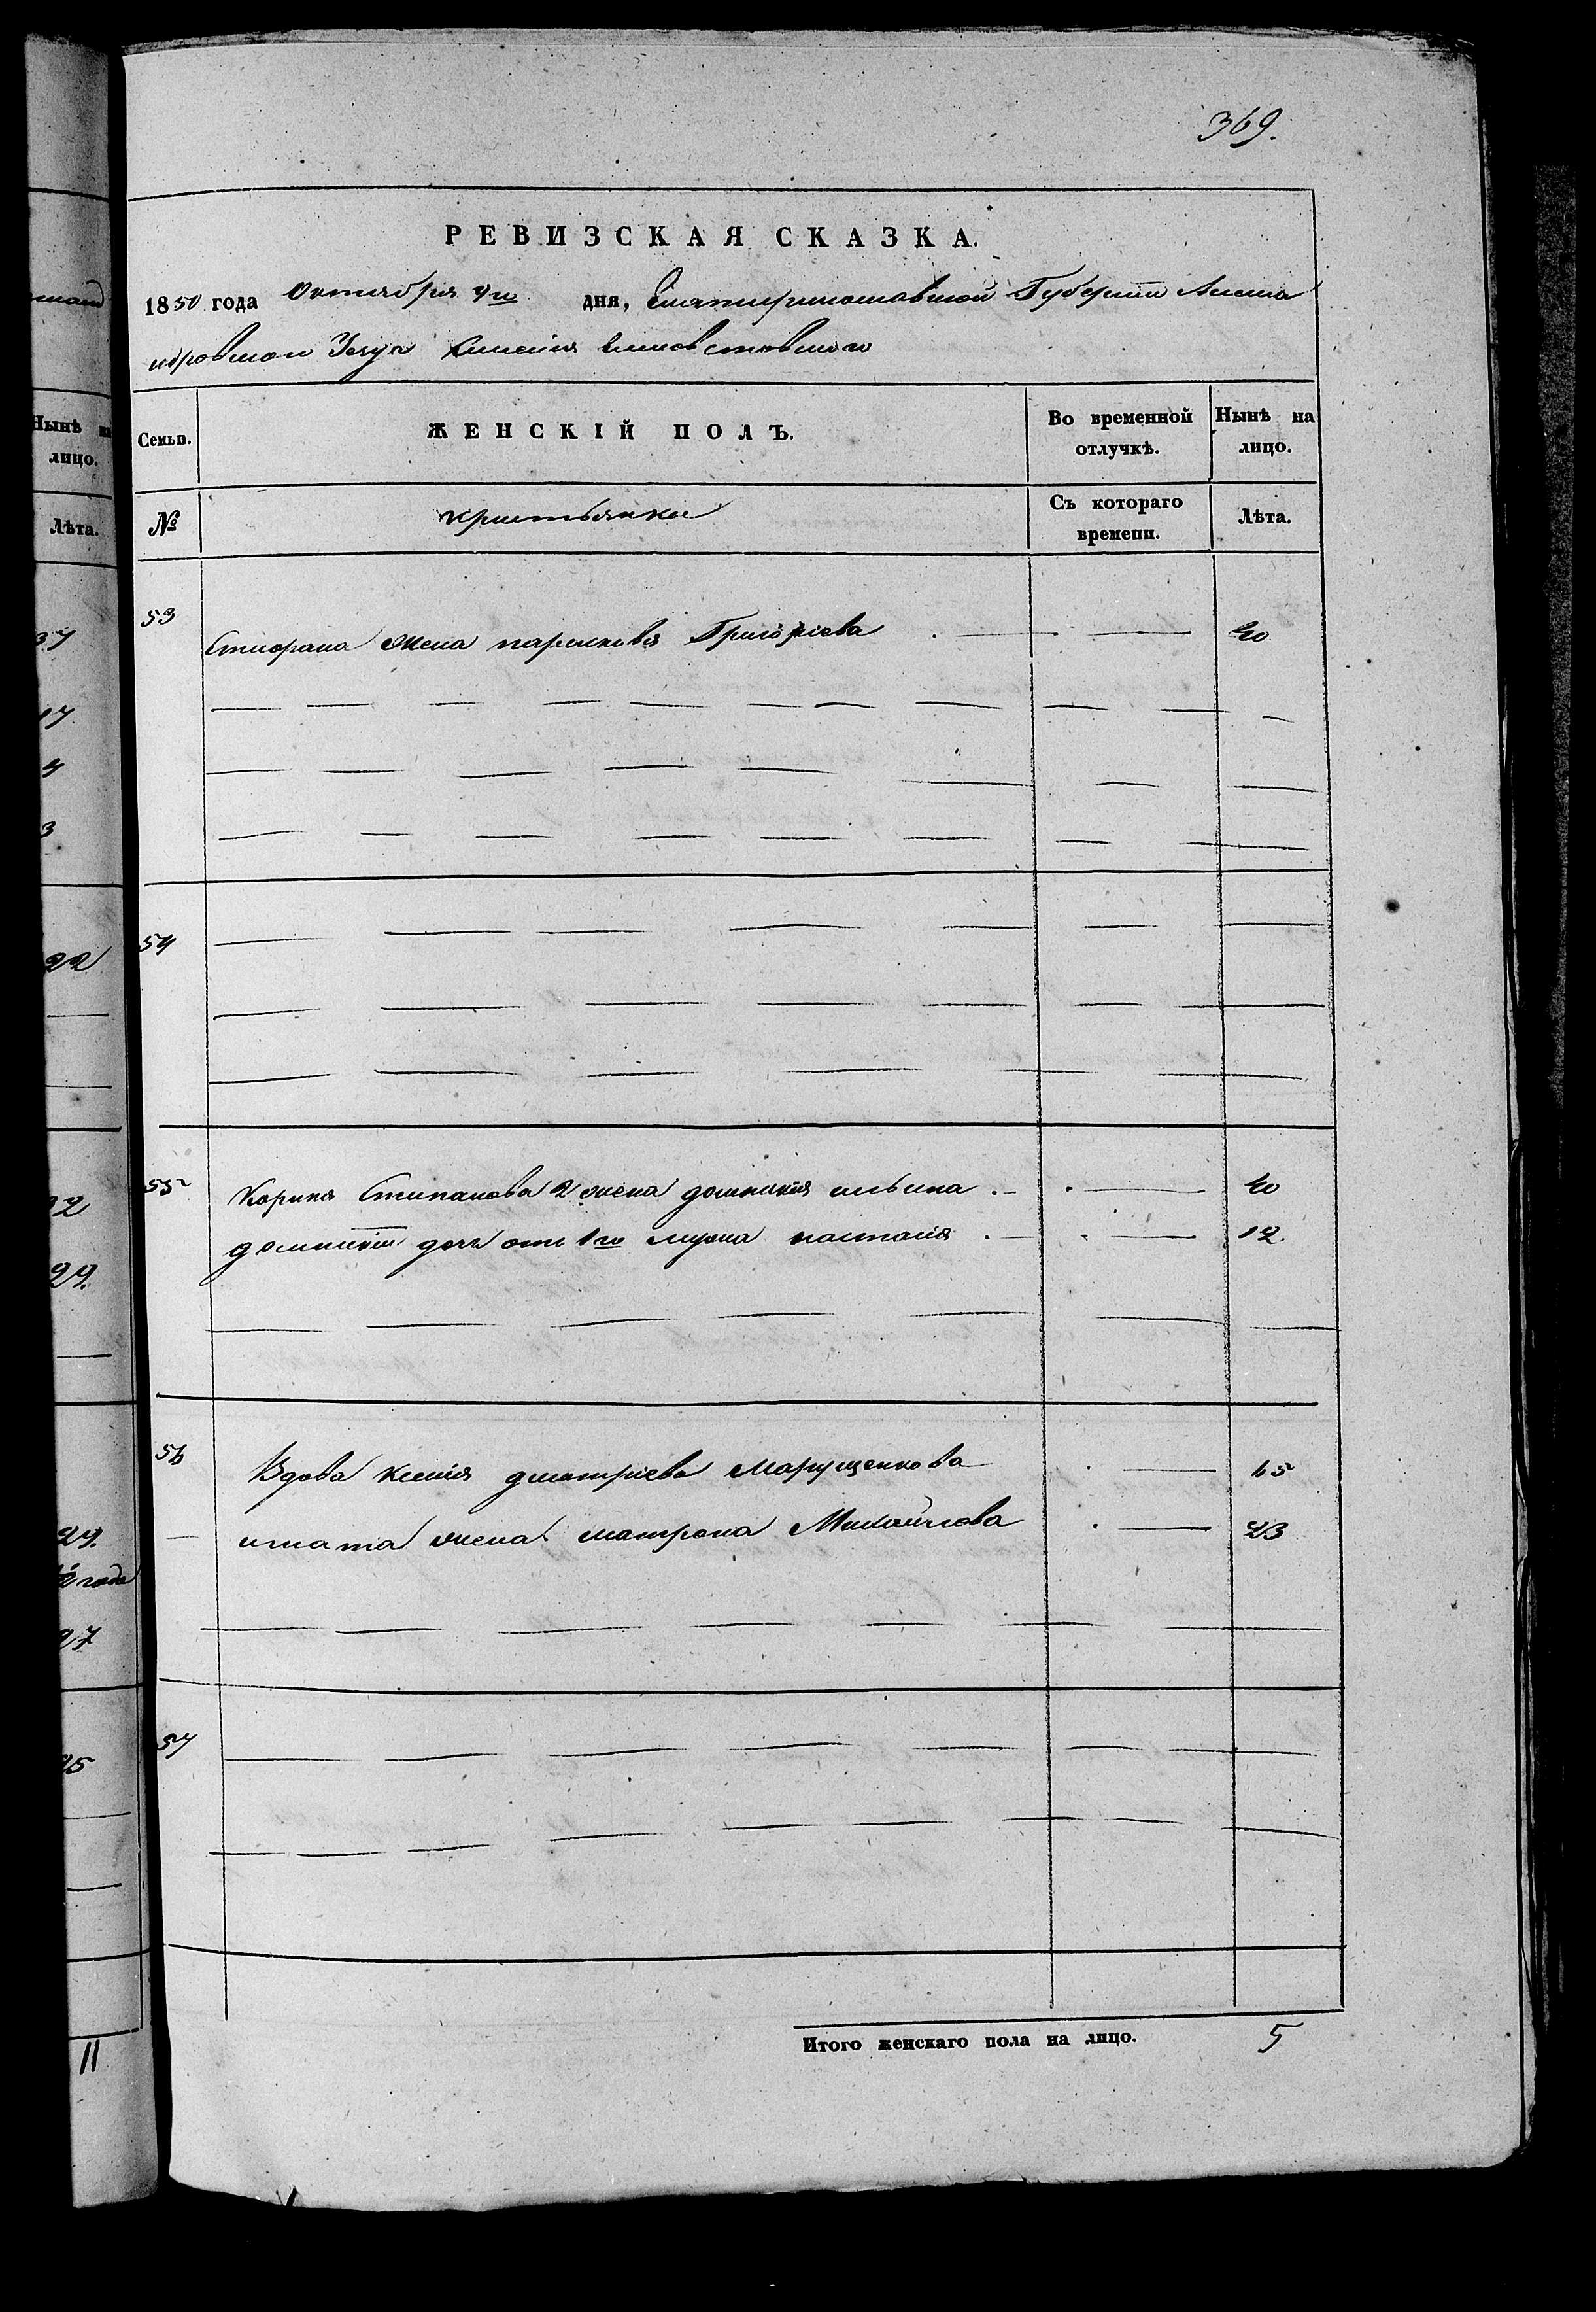 369.
РЕВИЗСКАЯ СКАЗКА.
1850 года Октября 4го дня, Екатеринославской Губернии Алекса
ндровском Уезда имения
Семьи. ЖЕНСКІЙ ПОЛЪ. Во временной отлучкѣ. Нынѣ на лицо.
№ крестьянки Съ котораго времени. Лѣта.
53 жена парасковья Григоріева 40
54
55 Корнея Степанова 2 жена домникія ильина 40
домникіи дочь от 1го мужа настасія 12.
56 Вдова ксенія дмитріева Марущенкова 65
игната жена матрона Михайлова 23
57
Итого женскаго пола на лицо. 5
Нынѣ на
лицо.
Лѣта.
37
17
4
3
22
29.
29.
года
27
11